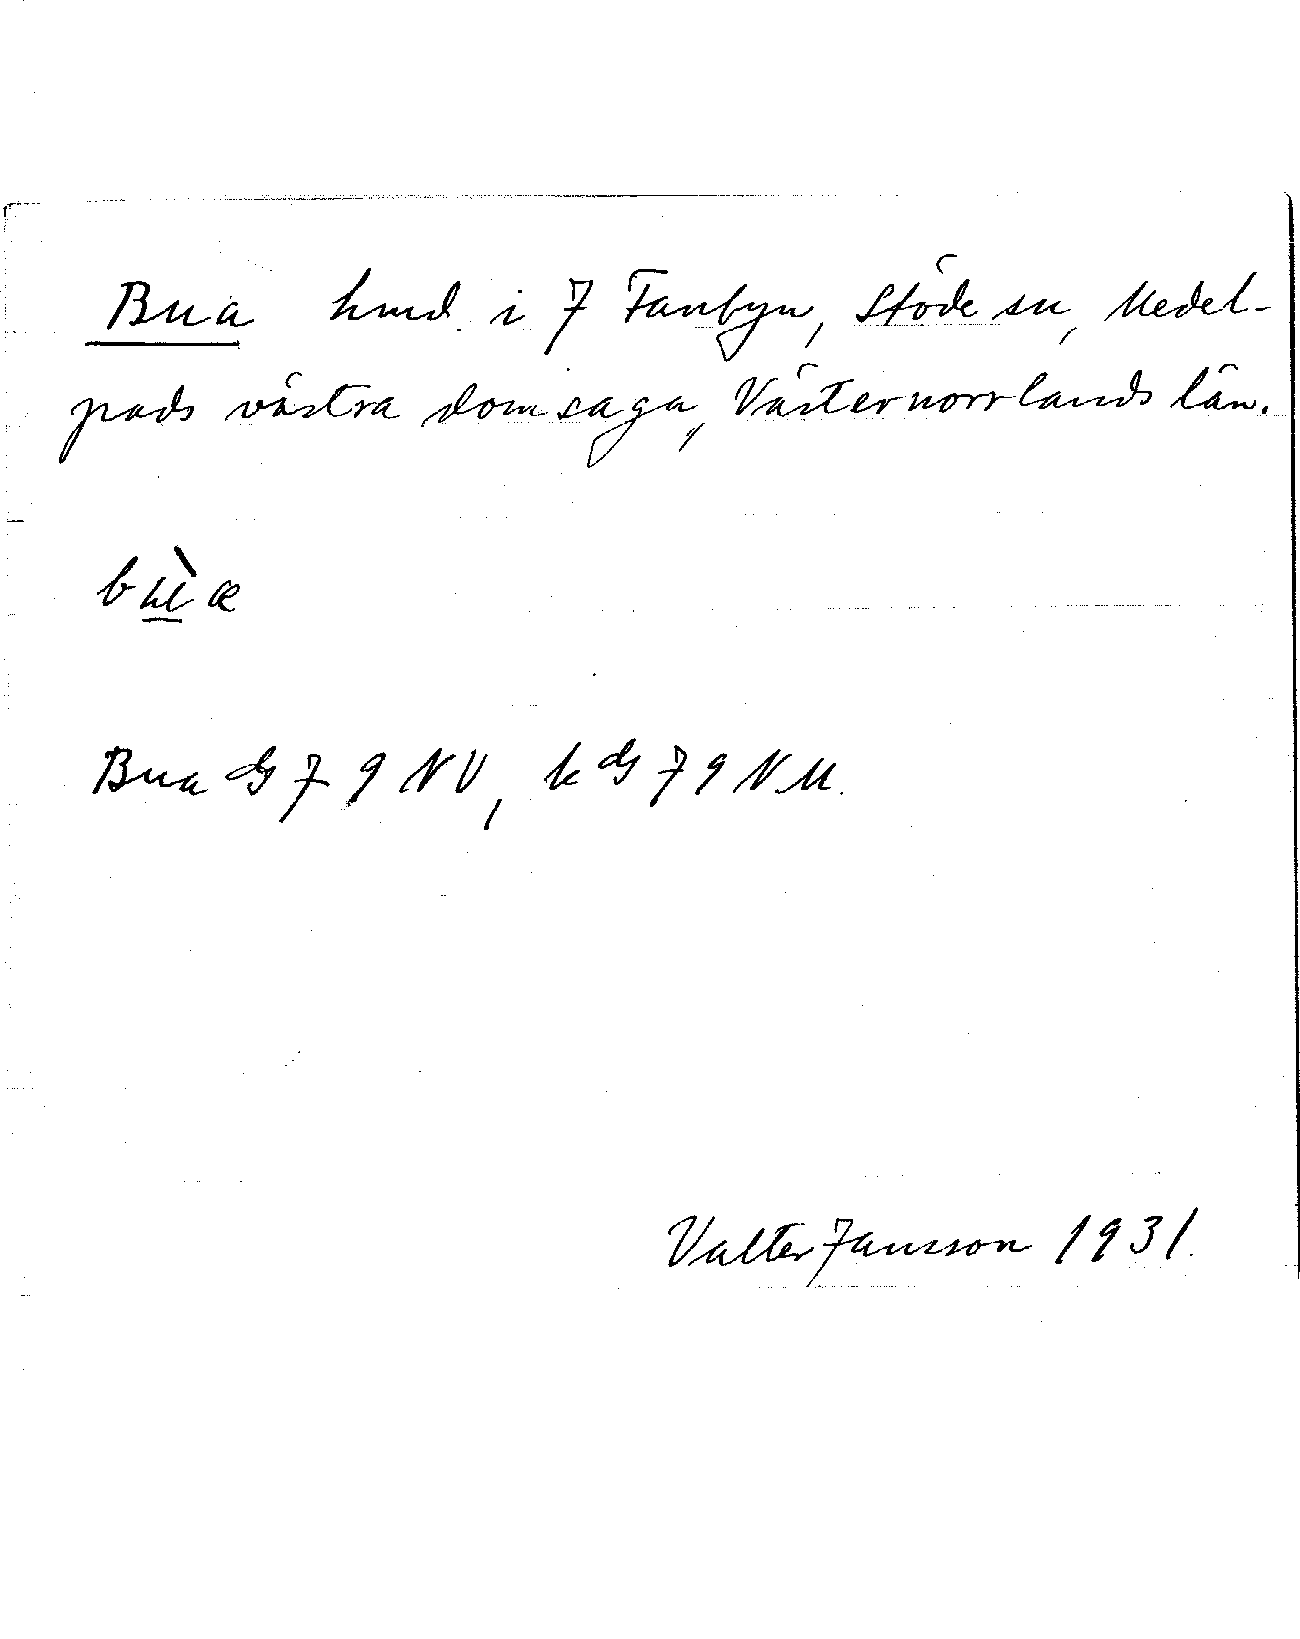 Bua hmd. i 7 Fanbyn, Stöde sn, Medel-
pads västra domsaga, Västernorrlands län.
bùa
Bua 7 9 NV, 7 9 NM.
Valter Jansson 1931.